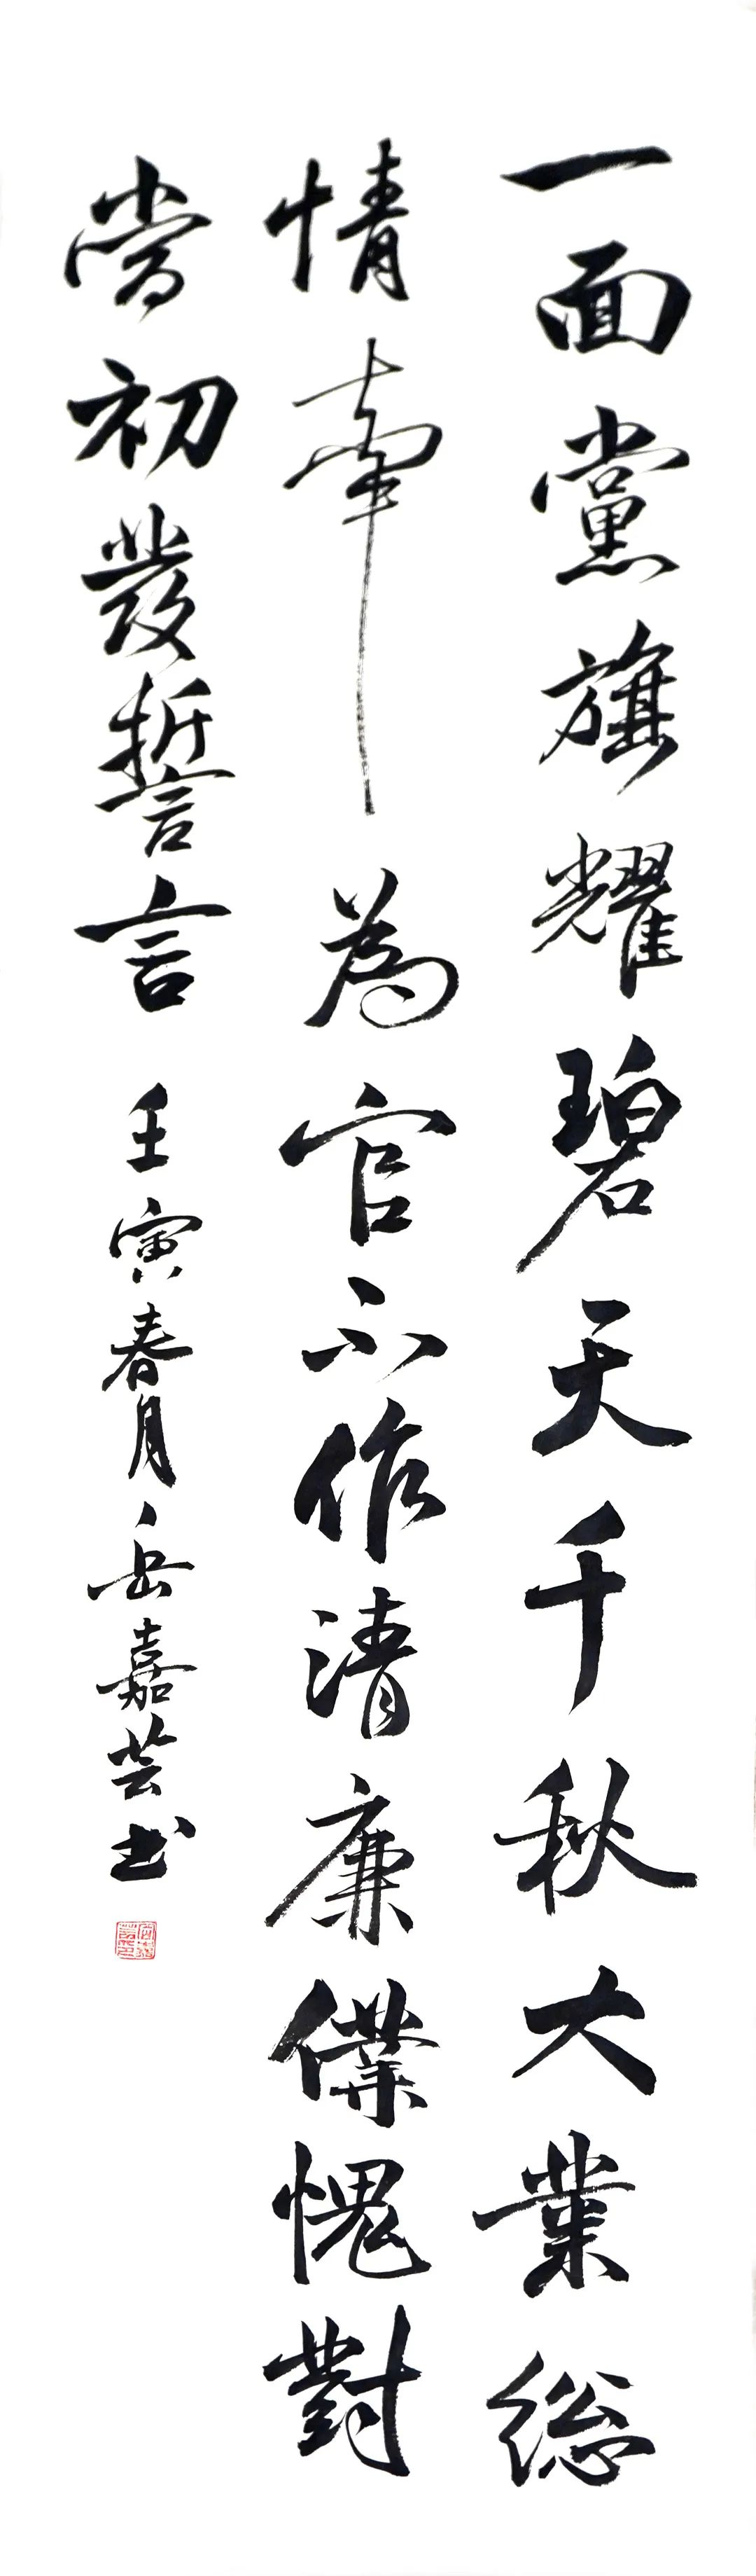 一面黨旗耀碧天千秋大業総
情牽為官不作清廉僕愧對
當初發誓言 壬寅春月岳嘉芸书